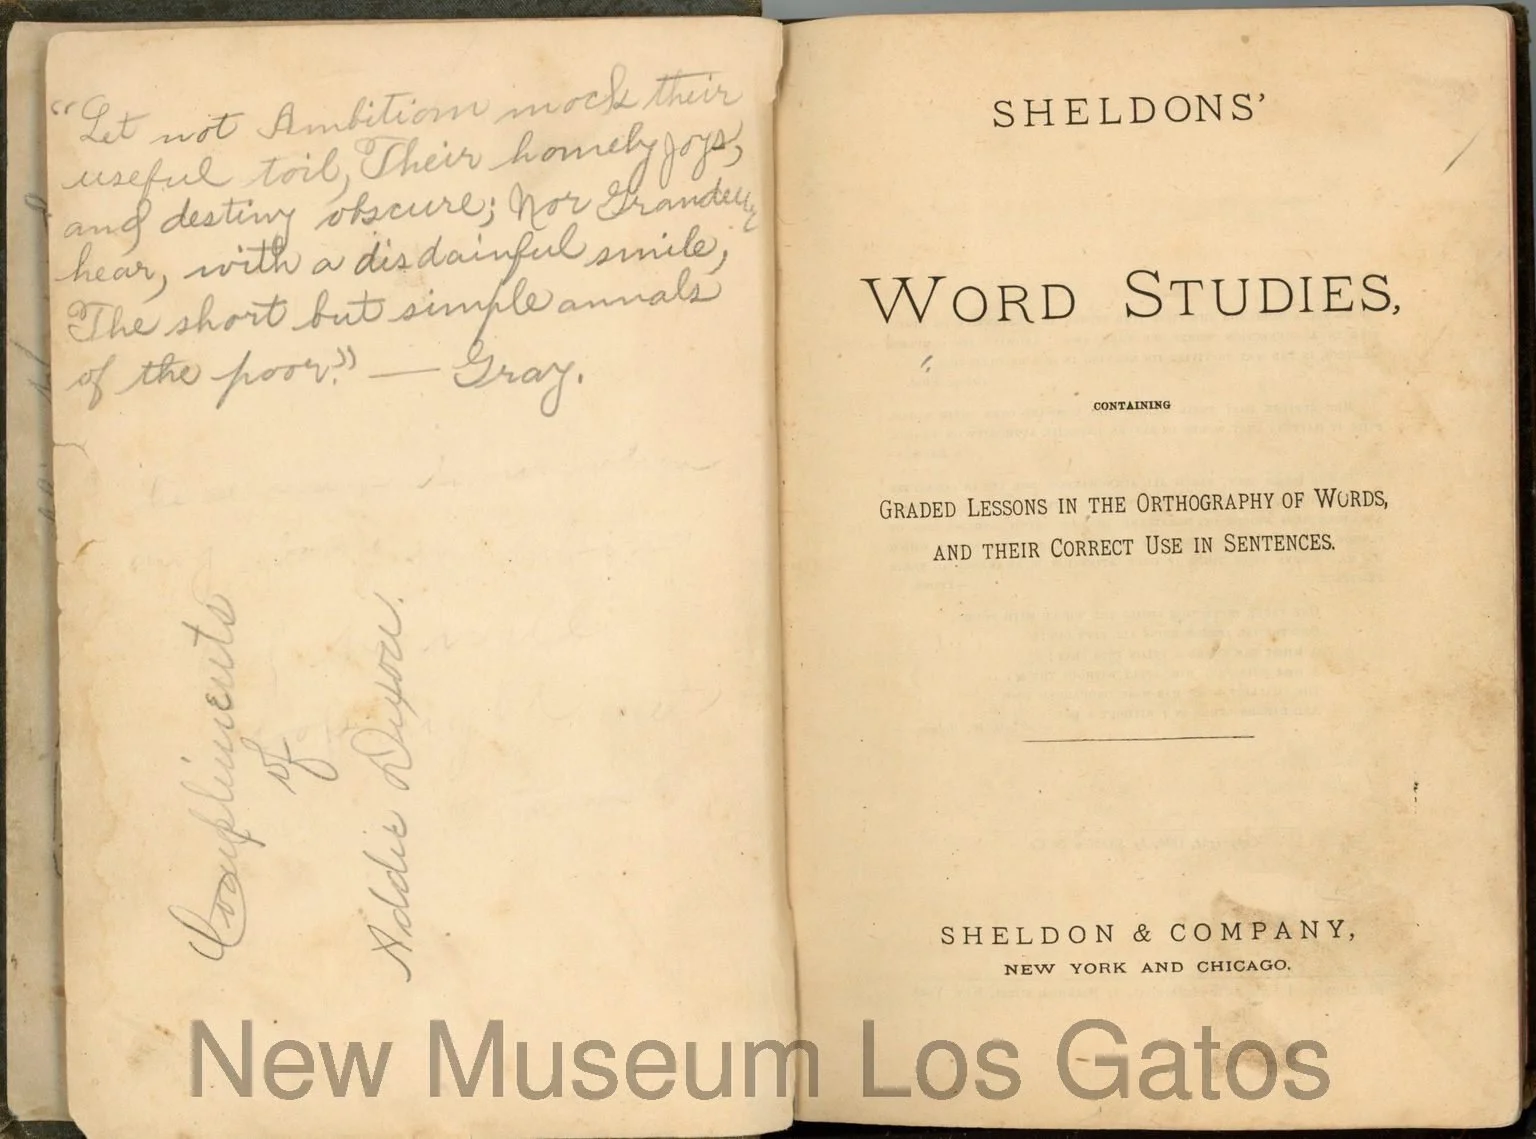 "Let not Ambition mock their
useful toil, Their homely joys,
and destiny obscure; Nor Grandeur,
hear, with a disdainful smile,
The short but simple annals
of the poor." — Gray.
Compliments
of
Addie Dixon.
SHELDONS'
WORD STUDIES,
CONTAINING
GRADED LESSONS IN THE ORTHOGRAPHY OF WORDS,
AND THEIR CORRECT USE IN SENTENCES.
SHELDON & COMPANY,
NEW YORK AND CHICAGO.
New Museum Los Gatos